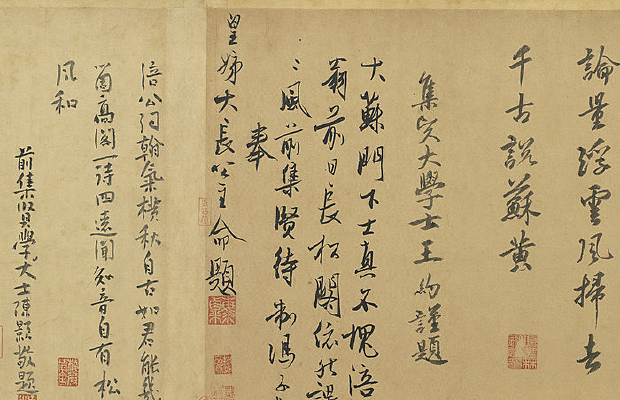 論量浮雲風掃去
千古說蘇黃
集賢大學士王約謹題
大蘇門下士真不愧涪
翁前日長松閣依然謖
〻風前集賢待制馮子
奉
皇姊大長公主命題
涪公詞翰氣橫秋自古如君能幾
箇高閣一詩四遠聞知音自有松
風和
前集賢大學士陳顥敬題